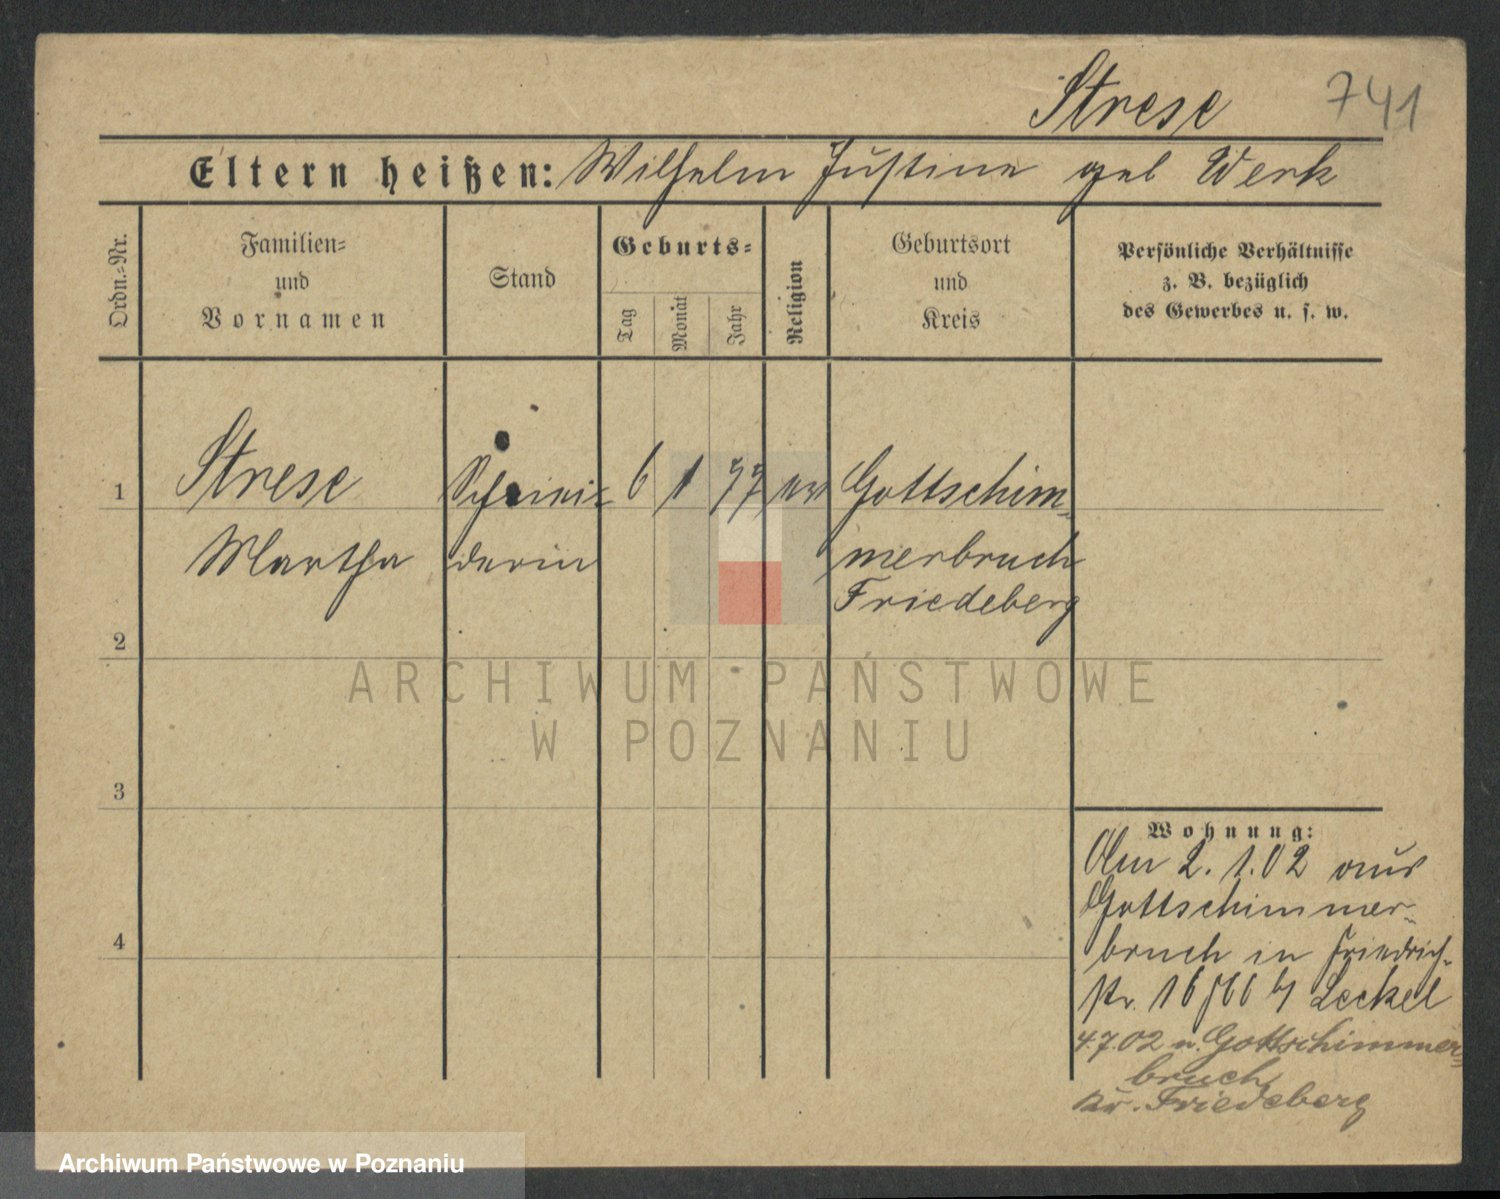 Strese 741
Eltern heißen: Wilhelm Justine geb Werk
Ordn.=Nr.
Familien=
und
Vornamen
Stand
Geburts=
Tag
Monat
Jahr
Religion
Geburtsort
und
Kreis
Persönliche Verhältnisse
z. B. bezüglich
des Gewerbes u. s. w.
1 Strese Schnei= 6 1 77 ev Gottschim=
Martha derin merbruch
Friedeberg
2
ARCHIWUM PAŃSTWOWE
W POZNANIU
3
4
Wohnung:
Am 2.1.02 aus
Gottschimmer=
bruch in Friedrich=
str. 16 b/ Leckel
4.7.02 n. Gottschimmer=
bruch
Kr. Friedeberg
Archiwum Państwowe w Poznaniu